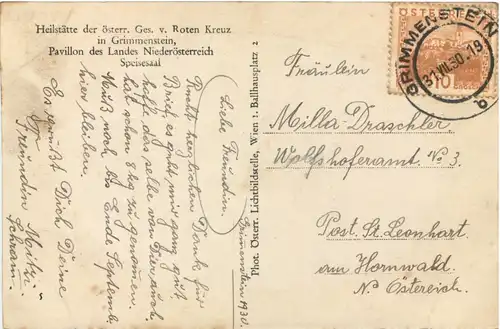 Heilstätte der österr. Ges. v. Roten Kreuz
in Grimmenstein,
Pavillon des Landes Niederösterreich
Speisesaal
Grimmenstein 1930.
Liebe Freundin.
Recht herzlichen Dank für
Brief, es geht mir ganz gut
hoffe das selbe von Dir auch.
hab schon 8 kg zu genomen.
Muß noch bis Ende Septemb.
hier bleiben.
Es grüßt Dich Deine
Freundin Mitzi
Schram.
Phot. Österr. Lichtbildstelle, Wien 1. Ballhausplatz 2
ÖSTERREICH
10
GRIMMENSTEIN
31.VII.30.19
b
Fräulein
Milla Draschler,
Wolfshoferamt No 3.
Post. St. Leonhart
am Hornwald.
N. Östereich.